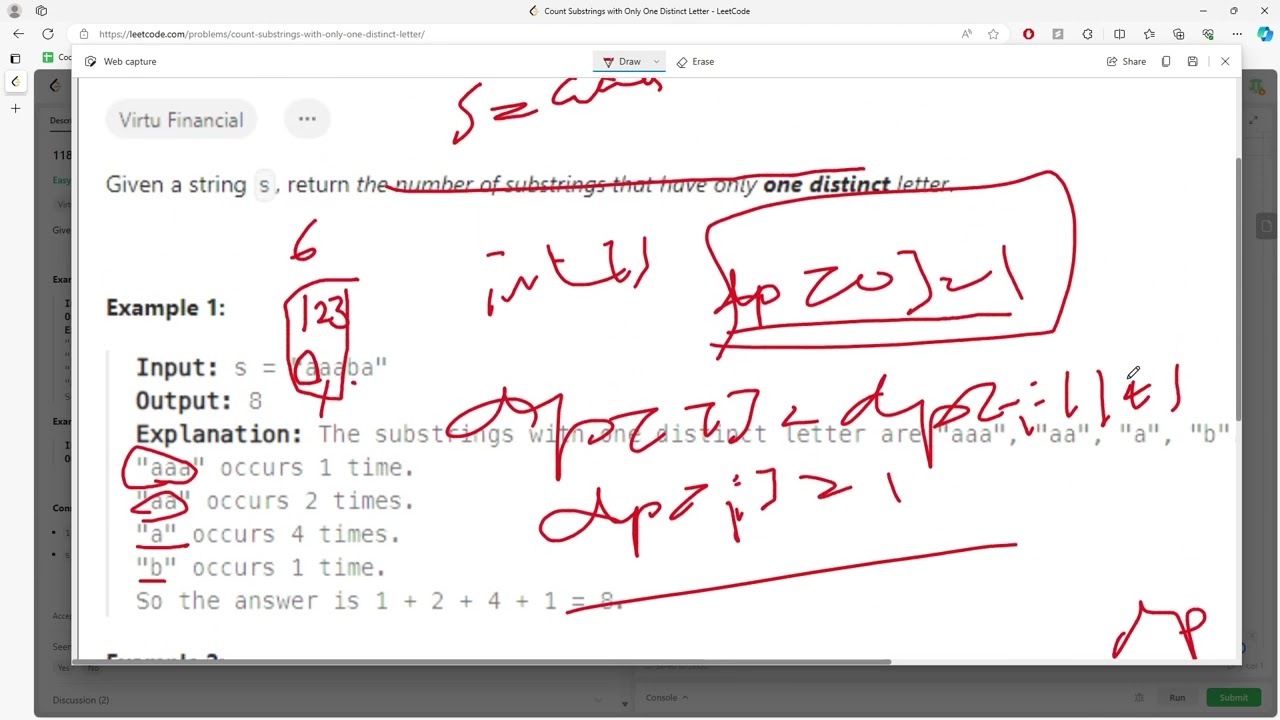 Count Substrings with Only One Distinct Letter - LeetCode
https://leetcode.com/problems/count-substrings-with-only-one-distinct-letter/
Web capture
Draw
Erase
Share
Virtu Financial
...
Given a string s, return the number of substrings that have only one distinct letter.
6
123
dp[0]=1
Example 1:
Input: s = "aaaba"
Output: 8
dp[i]=dp[i-1]+1
Explanation: The substrings with one distinct letter are "aaa", "aa", "a", "b"
"aaa" occurs 1 time.
"aa" occurs 2 times.
dp[i]=1
"a" occurs 4 times.
"b" occurs 1 time.
So the answer is 1 + 2 + 4 + 1 = 8.
dp
Discussion (2)
Console
Run
Submit